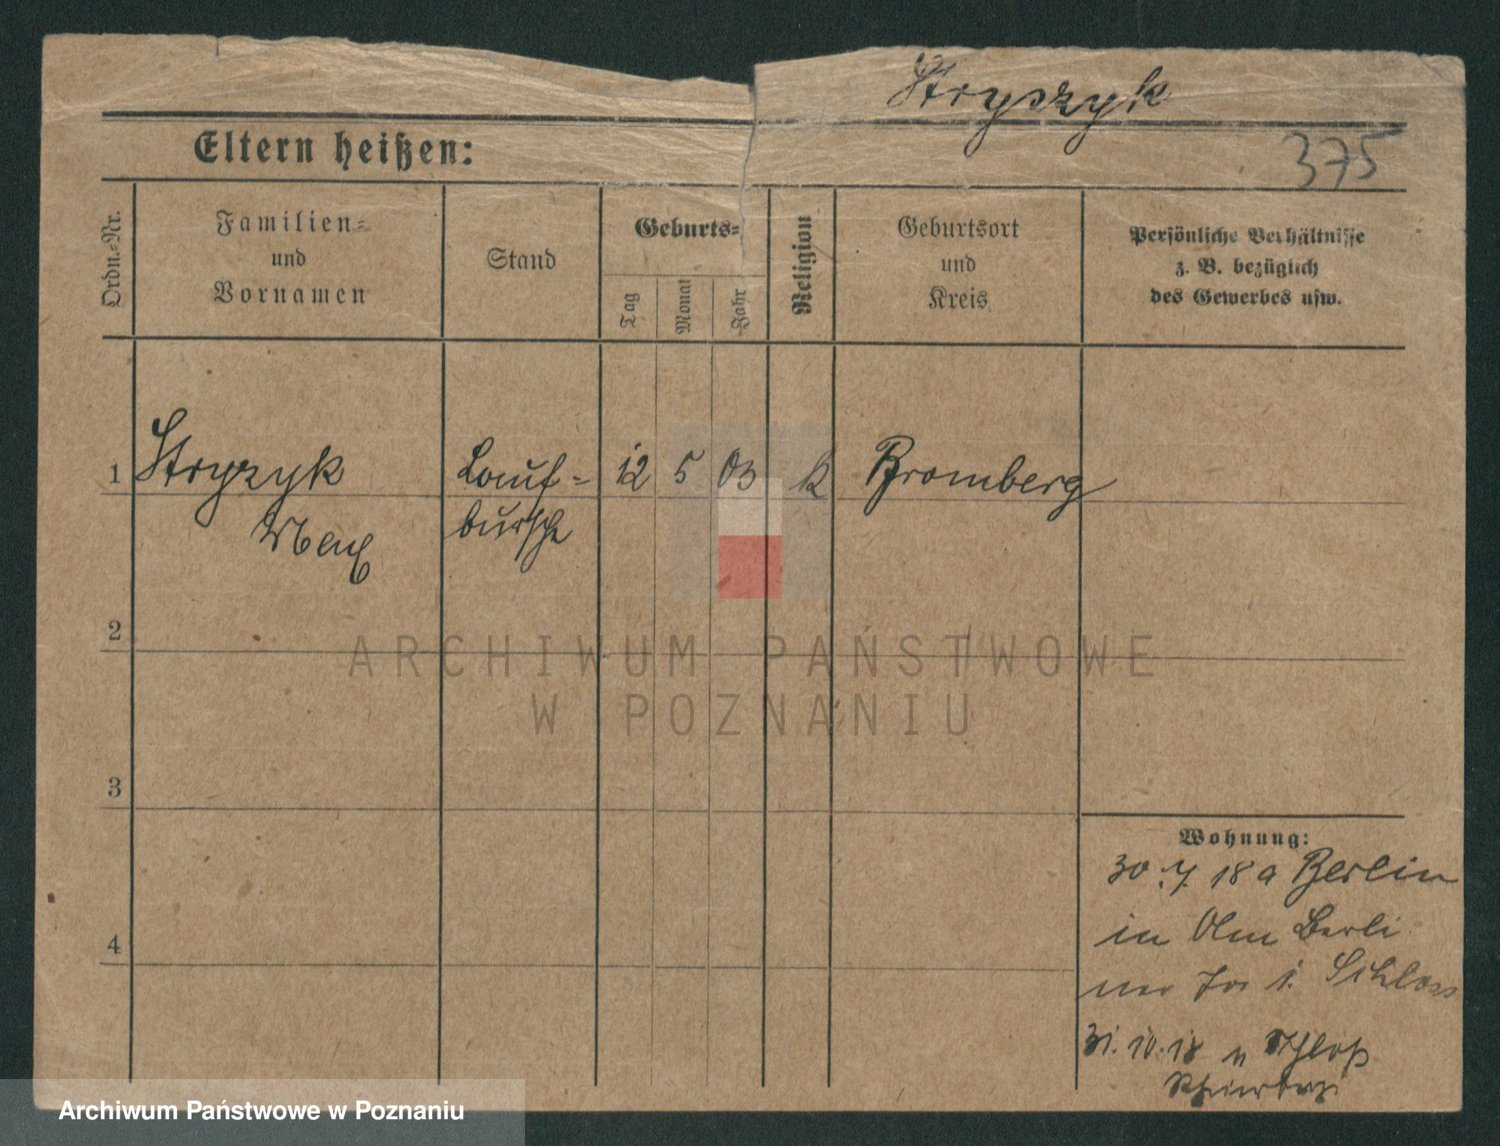 Stryszyk
375
Eltern heißen:
Ordn.-Nr.
Familien-
und
Vornamen
Stand
Geburts-
Tag
Monat
Jahr
Religion
Geburtsort
und
Kreis
Persönliche Verhältnisse
z. B. bezüglich
des Gewerbes usw.
1 Stryzyk Lauf- 12 5 03 k Bromberg
Max bursche
2
3
4
Wohnung:
30.7.18 a Berlin
in Am Berli
ner Tor i. Schloss
31.10.18 n Schloß
ARCHIWUM PAŃSTWOWE
W POZNANIU
Archiwum Państwowe w Poznaniu